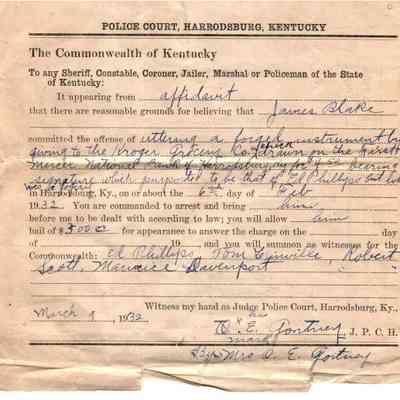 POLICE COURT, HARRODSBURG, KENTUCKY
The Commonwealth of Kentucky
To any Sheriff, Constable, Coroner, Jailer, Marshal or Policeman of the State
of Kentucky:
It appearing from affidavit
that there are reasonable grounds for believing that James Blake
committed the offense of uttering a forged instrument by
giving to the Kroger Grocery Co. check drawn on the
Mercer National Bank of Harrodsburg, Ky for bearing
signature which purported to be that of Ed Phillips but
was a forgery
in Harrodsburg, Ky., on or about the 6th day of Feb
1932. You are commanded to arrest and bring him
before me to be dealt with according to law; you will allow him
bail of $500.00 for appearance to answer the charge on the day
of 19 and you will summon as witnesses for the
Commonwealth: Ed Phillips, Tom Robert
Scott, Maurice Davenport
Witness my hand as Judge Police Court, Harrodsburg, Ky.,
March 9 1932
his
O. x E. Gortney J. P. C. H.
mark
By Mrs O. E. Gortney